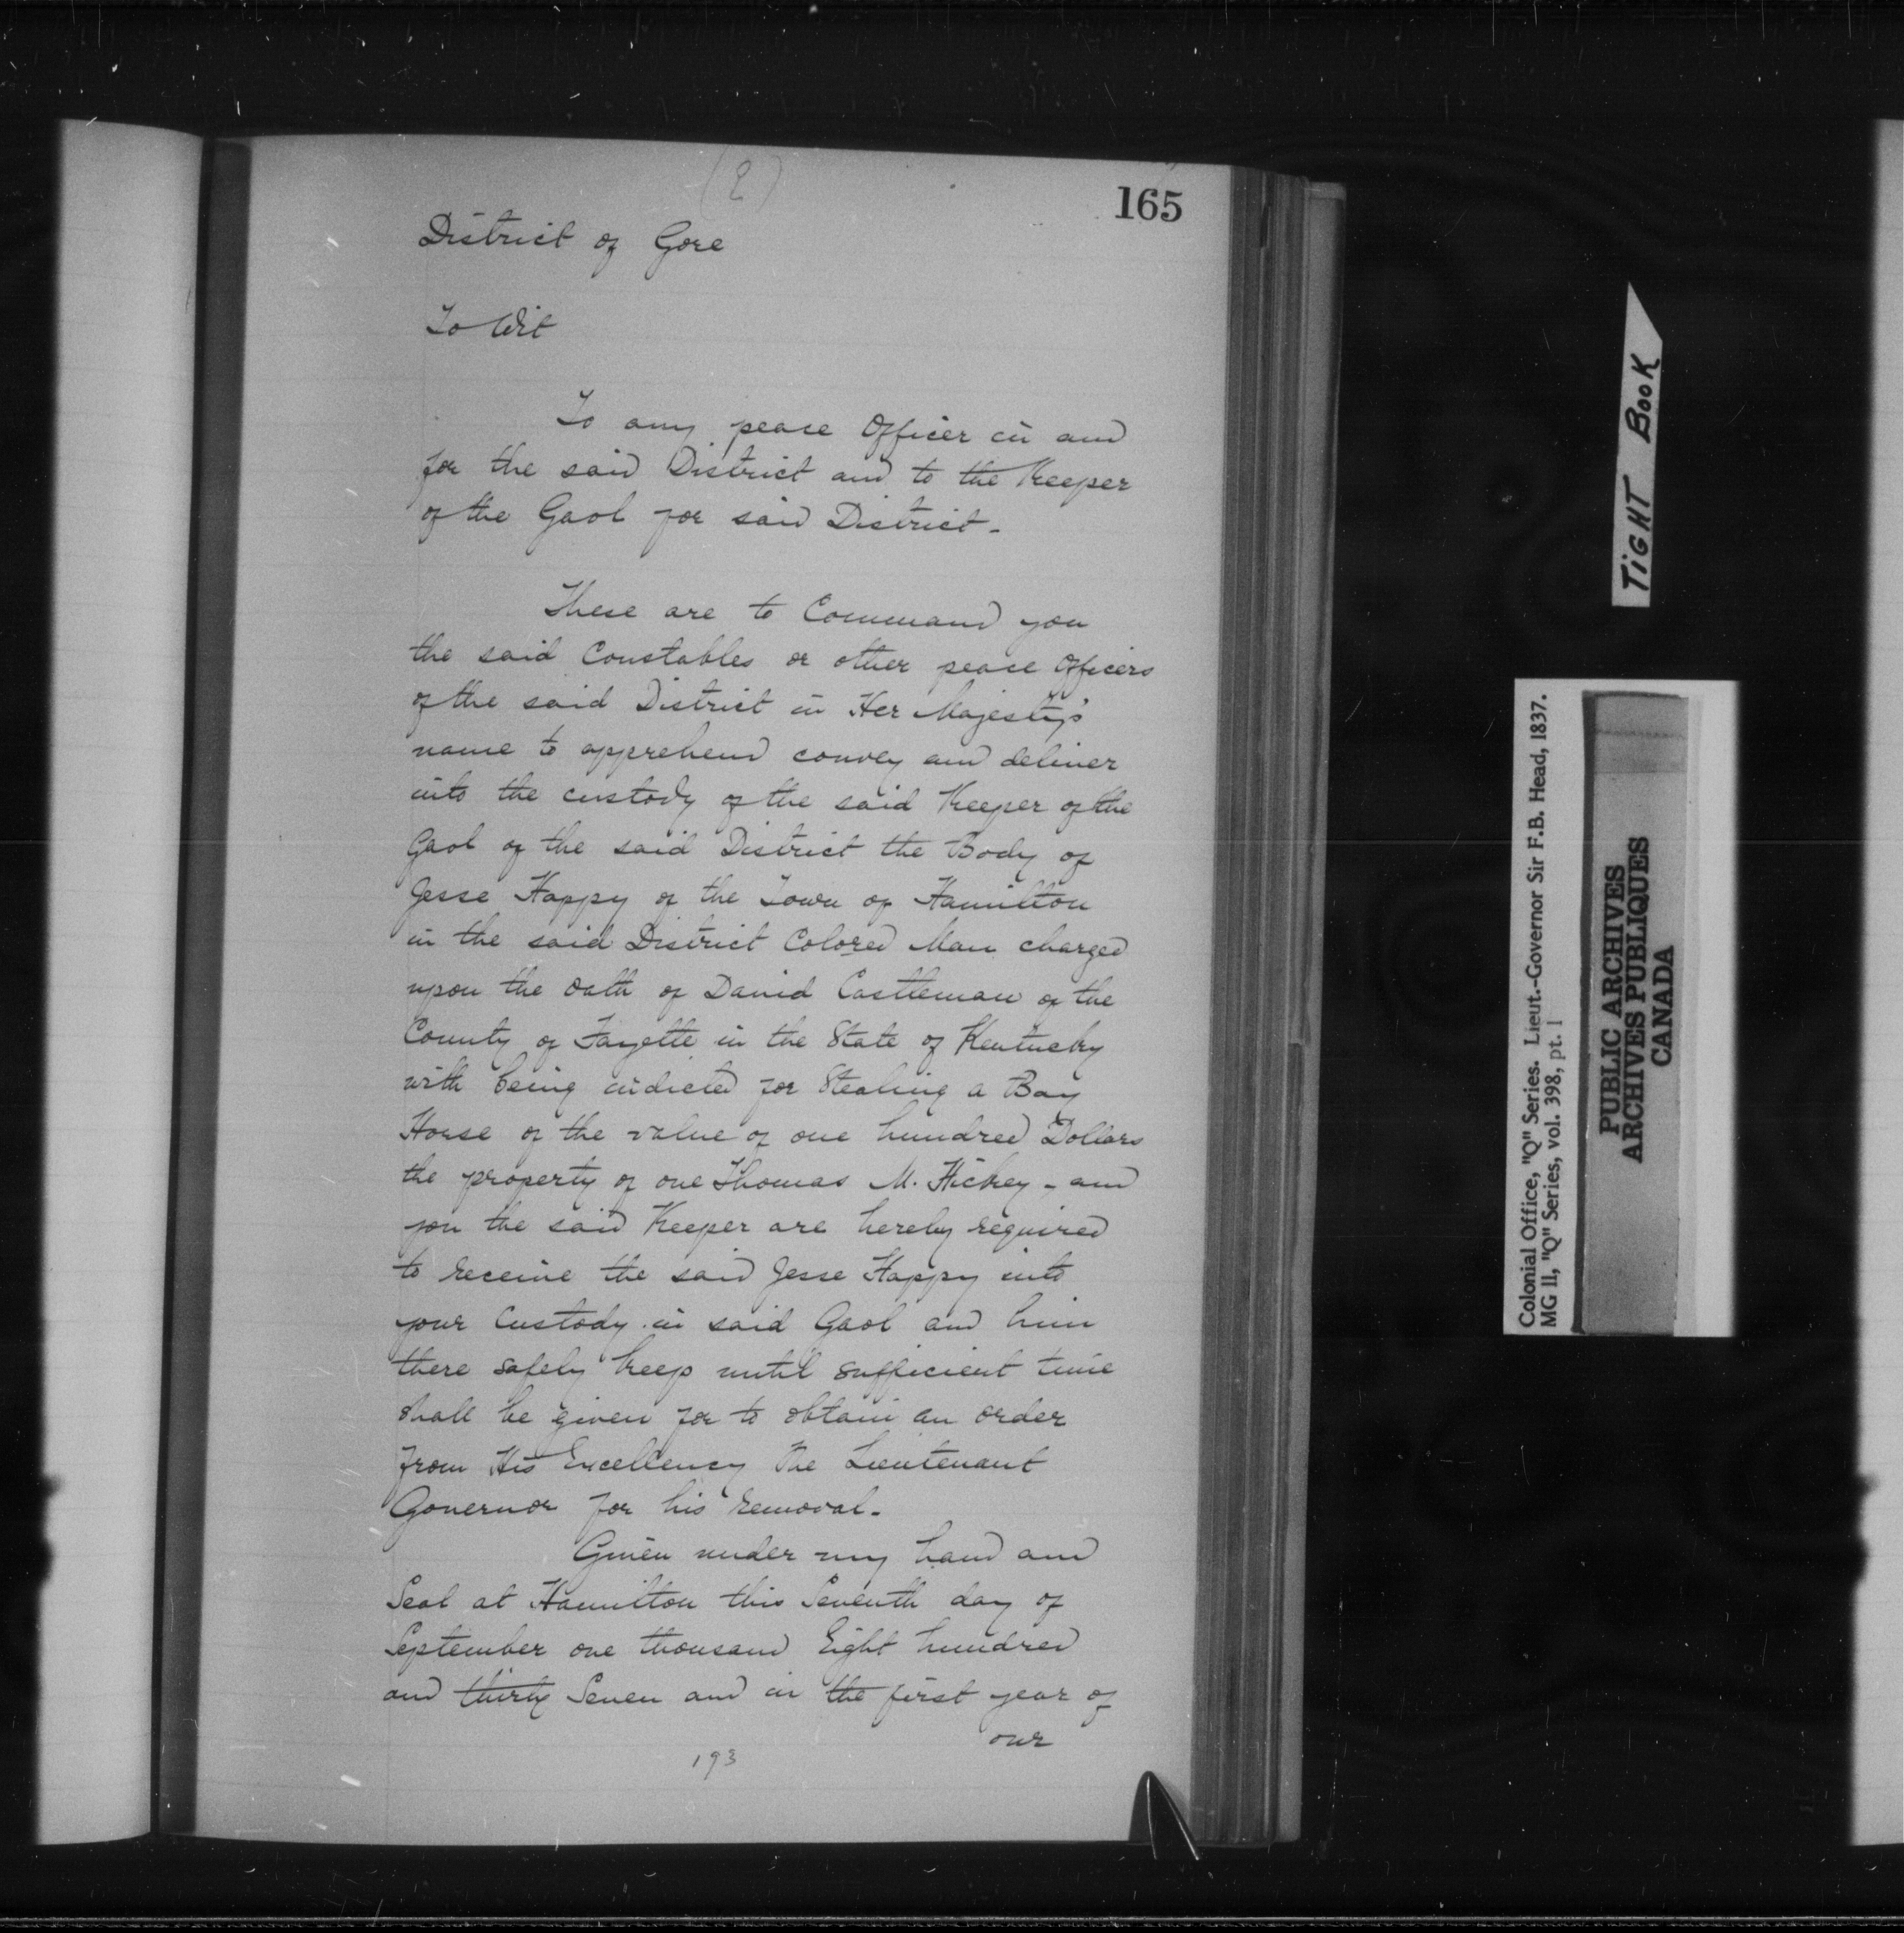 (2)
165
District of Gore
To Wit
To any peace Officer in and
for the said District and to the Keeper
of the Gaol for said District -
These are to Command you
the said Constables or other peace Officers
of the said District in Her Majesty's
name to apprehend convey and deliver
into the custody of the said Keeper of the
Gaol of the said District the Body of
Jesse Happy of the Town of Hamilton
in the said District Colored Man charged
upon the Oath of David Castleman of the
County of Fayette in the State of Kentucky
with being indicted for Stealing a Bay
Horse of the value of one hundred Dollars
the property of one Thomas M. Hickey - and
you the said Keeper are hereby required
to receive the said Jesse Happy into
your Custody in said Gaol and him
there safely keep until sufficient time
shall be given for to obtain an order
from His Excellency The Lieutenant
Governor for his removal -
Given under my hand and
Seal at Hamilton this Seventh day of
September one thousand Eight hundred
and thirty Seven and in the first year of
our
193
TIGHT BOOK
Colonial Office, "Q" Series. Lieut.-Governor Sir F.B. Head, 1837.
MG 11, "Q" Series, vol. 398, pt. 1
PUBLIC ARCHIVES
ARCHIVES PUBLIQUES
CANADA